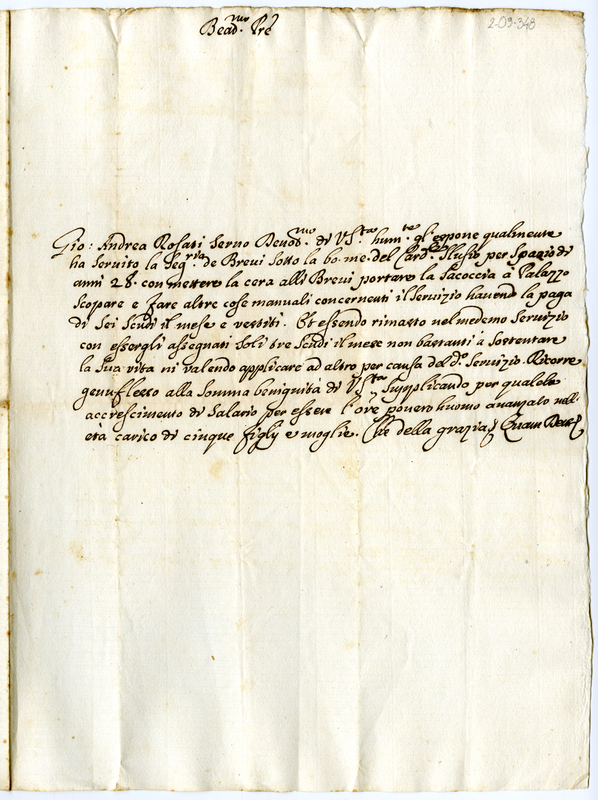 2-09-348
Bead.mo Pre
Gio: Andrea Rosati Servo Devot.mo di V.Stà hum.te gl'espone qualmente
ha servito la Seg.ria de Brevi sotto la bo: me. del Card.le Slusio per spazio di
anni 28. con mettere la cera alli Brevi portare la sacoccia à Palazzo
scopare e fare altre cose manuali concernenti il servizio havendo la paga
di sei scudi il mese e vestiti. Et essendo rimasto nel medemo servizio
con essergli assegnati soli tre scudi il mese non bastanti à sostentare
la sua vita ni valendo applicare ad altro per causa del d.o servizio. Ricorre
genuflesso alla somma benignità di V.Stà supplicando per qualche
accrescimento di salario per essere l'Ore povero huomo avanzato nell'
età carico di cinque figly e moglie. Che della grazia Quam Deus